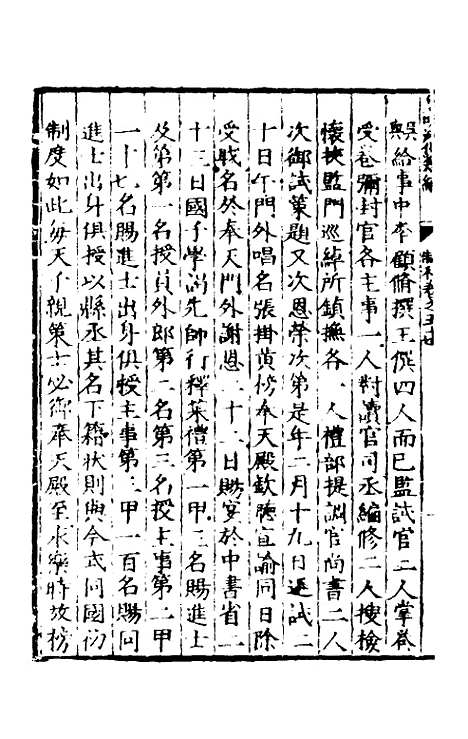 吳給事中李顧脩撰王僎四人而已監試官二人掌卷
受卷彌封官各主事一人對讀官司丞編修二人搜檢
懷挾監門巡綽所鎮撫各一人禮部提調官尚書二人
次御試策題又次恩榮次第是年二月十九日廷試二
十日午門外唱名張掛黃榜奉天殿欽聽宣諭同日除
受職名於奉天門外謝恩二十一日賜宴於中書省二
十三日國子學謁先師行釋菜禮第一甲三名賜進士
及第第一名授員外郎第二名第三名授主事第二甲
一十七名賜進士出身俱授主事第三甲一百名賜同
進士出身俱授以縣丞其名下籍狀則與今式同國初
制度如此每天子親策士必御奉天殿至永樂時故榜